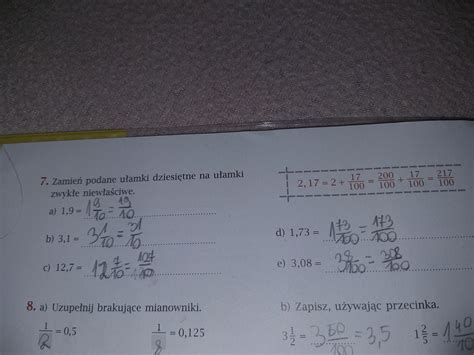 7. Zamień podane ułamki dziesiętne na ułamki
zwykłe niewłaściwe.
2,17 = 2 + 17/100 = 200/100 + 17/100 = 217/100
a) 1,9 = 1 9/10 = 19/10
b) 3,1 = 3 1/10 = 31/10
c) 12,7 = 12 7/10 = 107/10
d) 1,73 = 1 73/100 = 173/100
e) 3,08 =
8. a) Uzupełnij brakujące mianowniki.
1/2 = 0,5 1/8 = 0,125
b) Zapisz, używając przecinka.
3 1/2 = = 3,5 1 2/5 =